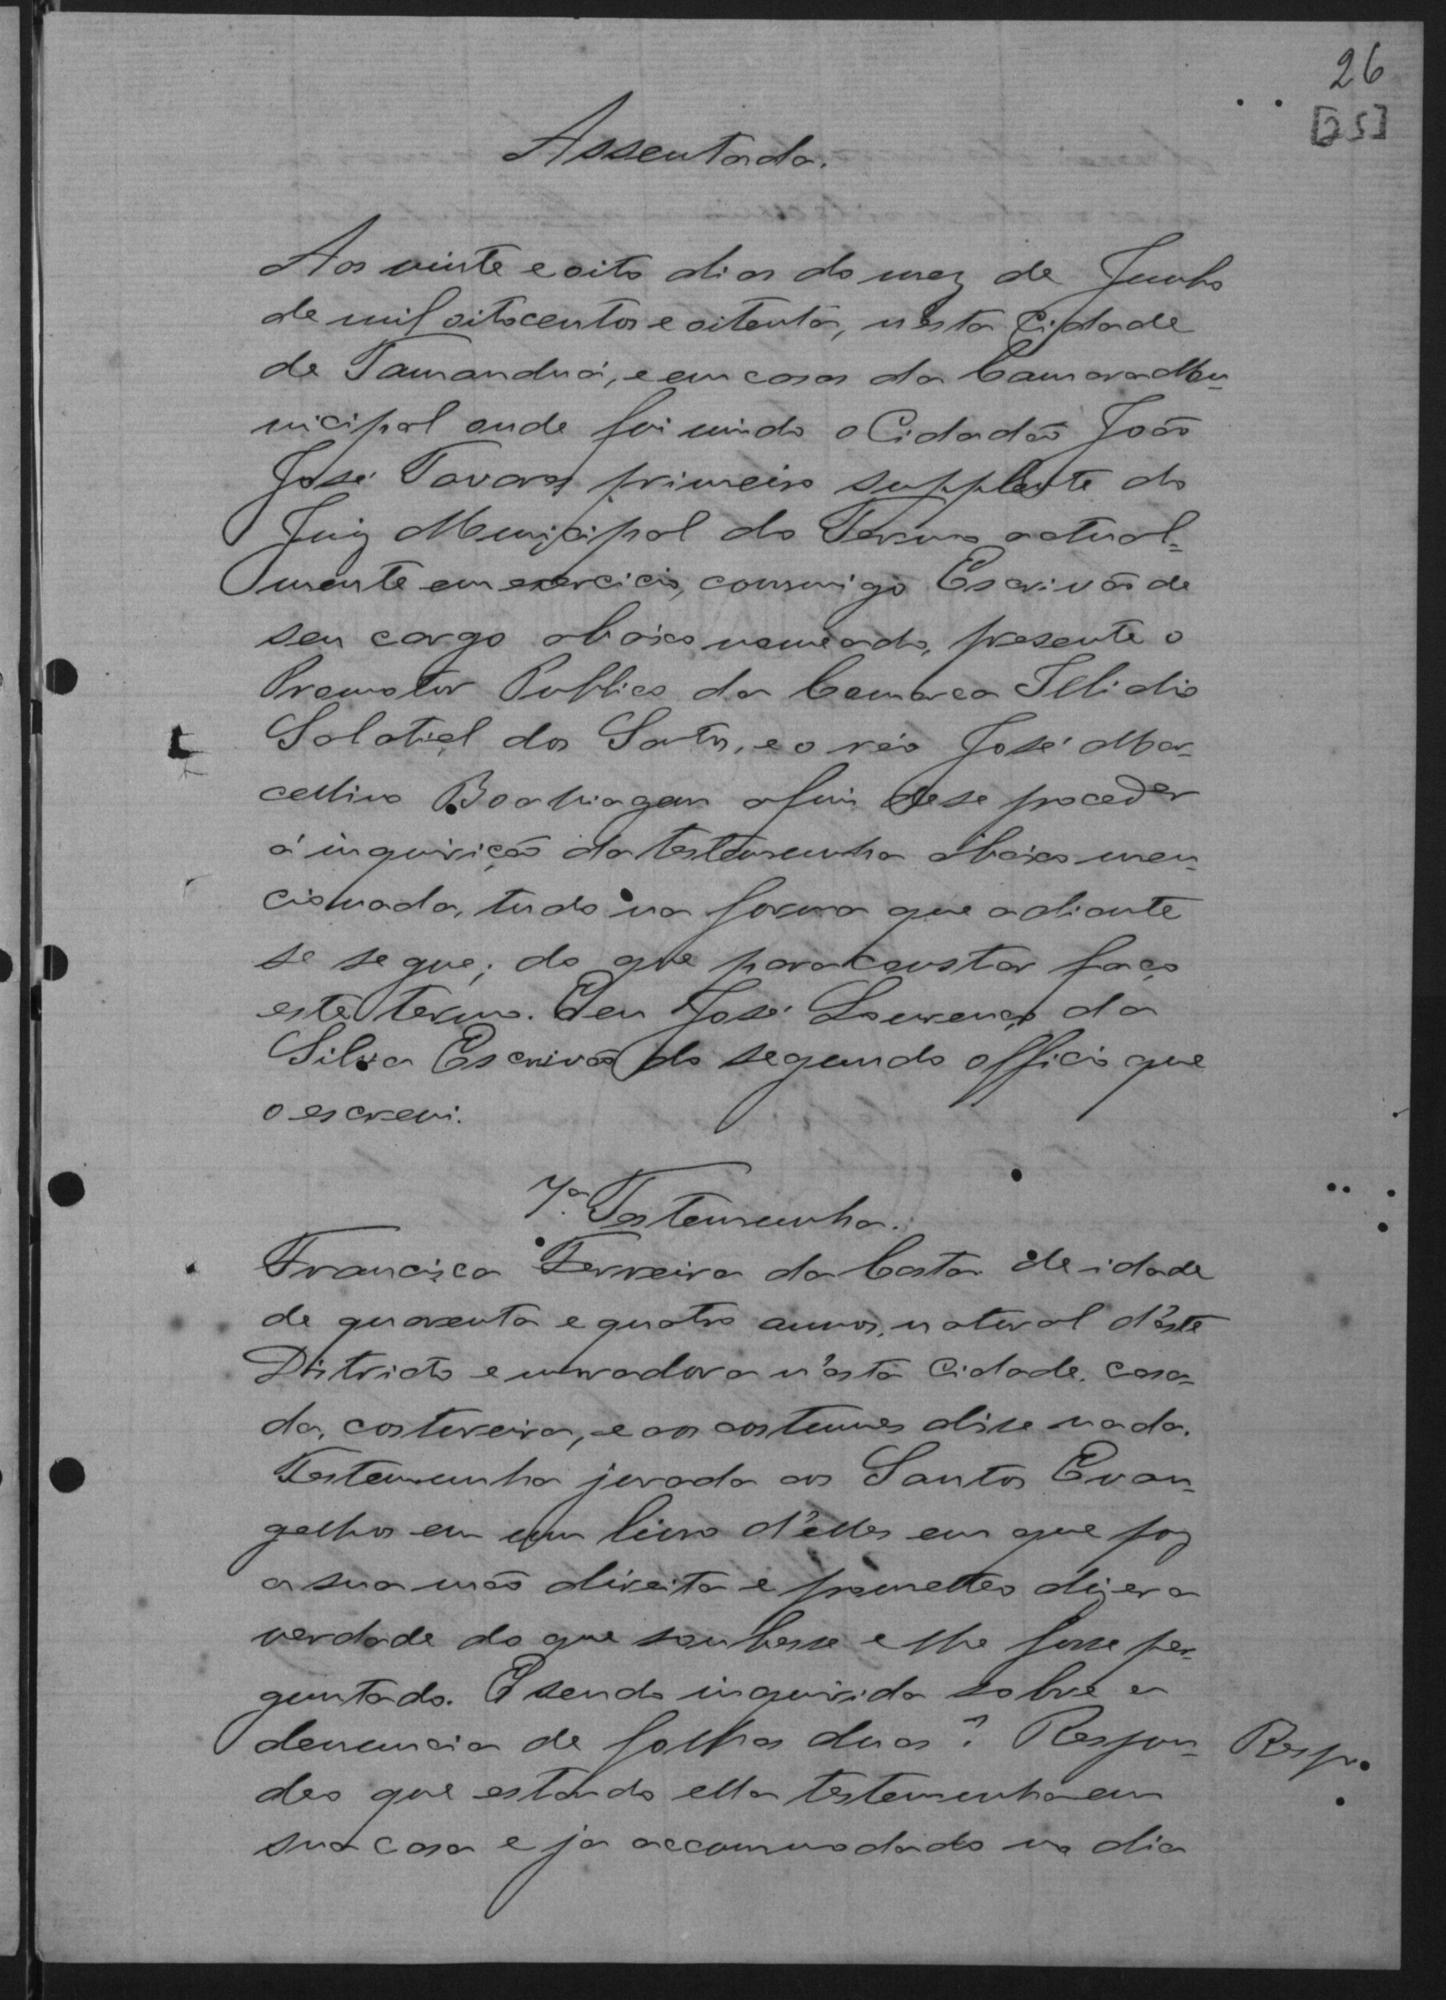 26
[25]
Assentada.
Aos vinte e oito dias do mez de Junho
de mil oitocentos e oitenta, n'esta Cidade
de Tamanduá, e em casas da Camara Mu-
nicipal onde foi vindo o Cidadão João
José Tavares primeiro supplente do
Juiz Municipal do Termo actual-
mente em exercicio, commigo Escrivão de
seu cargo abaixo nomeado, presente o
Promotor Publico da Comarca Illidio
Salatiel dos Santos, e o réo José Mar-
cellino Boaviagem afim de se proceder
á inquirição da testemunha abaixo men-
cionada, tudo na forma que adiante
se segue; do que para constar faço
este termo. Eu José Lourenço da
Silva Escrivão do segundo officio que
o escrevi.
7ª Testemunha.
Francisca Ferreira da Costa de idade
de quarenta e quatro annos, natural d'este
Districto e moradora n'esta Cidade, casa-
da, costureira, e aos costumes disse nada.
Testemunha jurada aos Santos Evan-
gelhos em um livro d'elles em que poz
a sua mão direita e prometteo dizer a
verdade do que soubesse e lhe fosse per-
guntado. E sendo inquirida sobre a
denuncia de folhas duas? Respon- Resp.
deo que estando ella testemunha em
sua casa e ja accommodada no dia